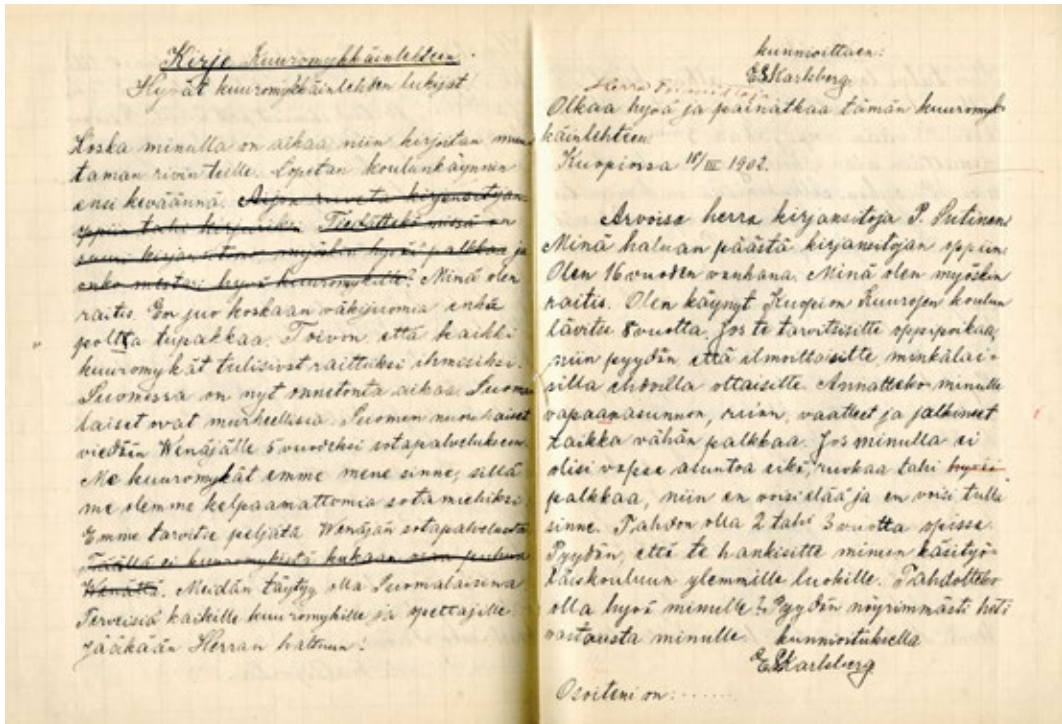 Kirje Kuuromykkäinlehteen.
Hyvät kuuromykkäinlehden lukijat!
Koska minulla on aikaa niin kirjoitan muu-
taman rivin teille. Lopetan koulunkäynnin
ensi keväännä. Aijon ruveta kirjansitojan
oppiin tahi kirjuriksi. Tiedättekö missä on
suuri kirjansitomo myöskin hyvä palkkaa ja
onko mestari hyvä kuuromykille? Minä olen
raitis. En juo koskaan väkijuomia enkä
poltta tupakkaa. Toivon että kaikki
kuuromykät tulisivat raittiiksi ihmisiksi.
Suomessa on nyt onnetonta aikaa. Suoma-
laiset ovat murheellisia. Suomen nuorukaiset
viedään Wenäjälle 5 vuodeksi sotapalvelukseen.
Me kuuromykät emme mene sinne, sillä
me olemme kelpaamattomia sotamiehiksi.
Emme tarvitse peljätä Wenäjän sotapalvelusta.
Täällä ei kuuromykistä kukaan osaa puhua
Wenättä. Meidän täytyy olla Suomalaisina
Terveisiä kaikille kuuromykille ja opettajille.
Jääkään Herran haltuun!
kunnioittaen:
E.S.Karlsberg
Herra toimittaja
Olkaa hyvä ja painatkaa tämän kuuromyk-
käinlehteen.
Kuopiossa 18/III 1902.
Arvoisa herra kirjansitoja P. Putinen
Minä haluan päästä kirjansitojan oppiin.
Olen 16 vuoden vanhana. Minä olen myöskin
raitis. Olen käynyt Kuopion Kuurojen koulun
lävitse 8 vuotta. Jos te tarvitsisitte oppipoikaa,
niin pyydän että ilmoittaisitte minkälai-
silla ehdoilla ottaisitte. Annatteko minulle
vapaanasunnon, ruian, vaatteet ja jalkineet
taikka vähän palkkaa. Jos minulla ei
olisi vapaa asuntoa eikä, ruokaa tahi hyvää
palkkaa, niin en voisi elää ja en voisi tulla
sinne. Tahdon olla 2 tahi 3 vuotta opissa.
Pyydän, että te hankisitte minun käsityö-
läiskouluun ylemmille luokille. Tahdotteko
olla hyvä minulle? Pyydän nöyrimmästi heti
vastausta minulle. kunnioituksella
E.S.Karlsberg
Osoiteni on: ......